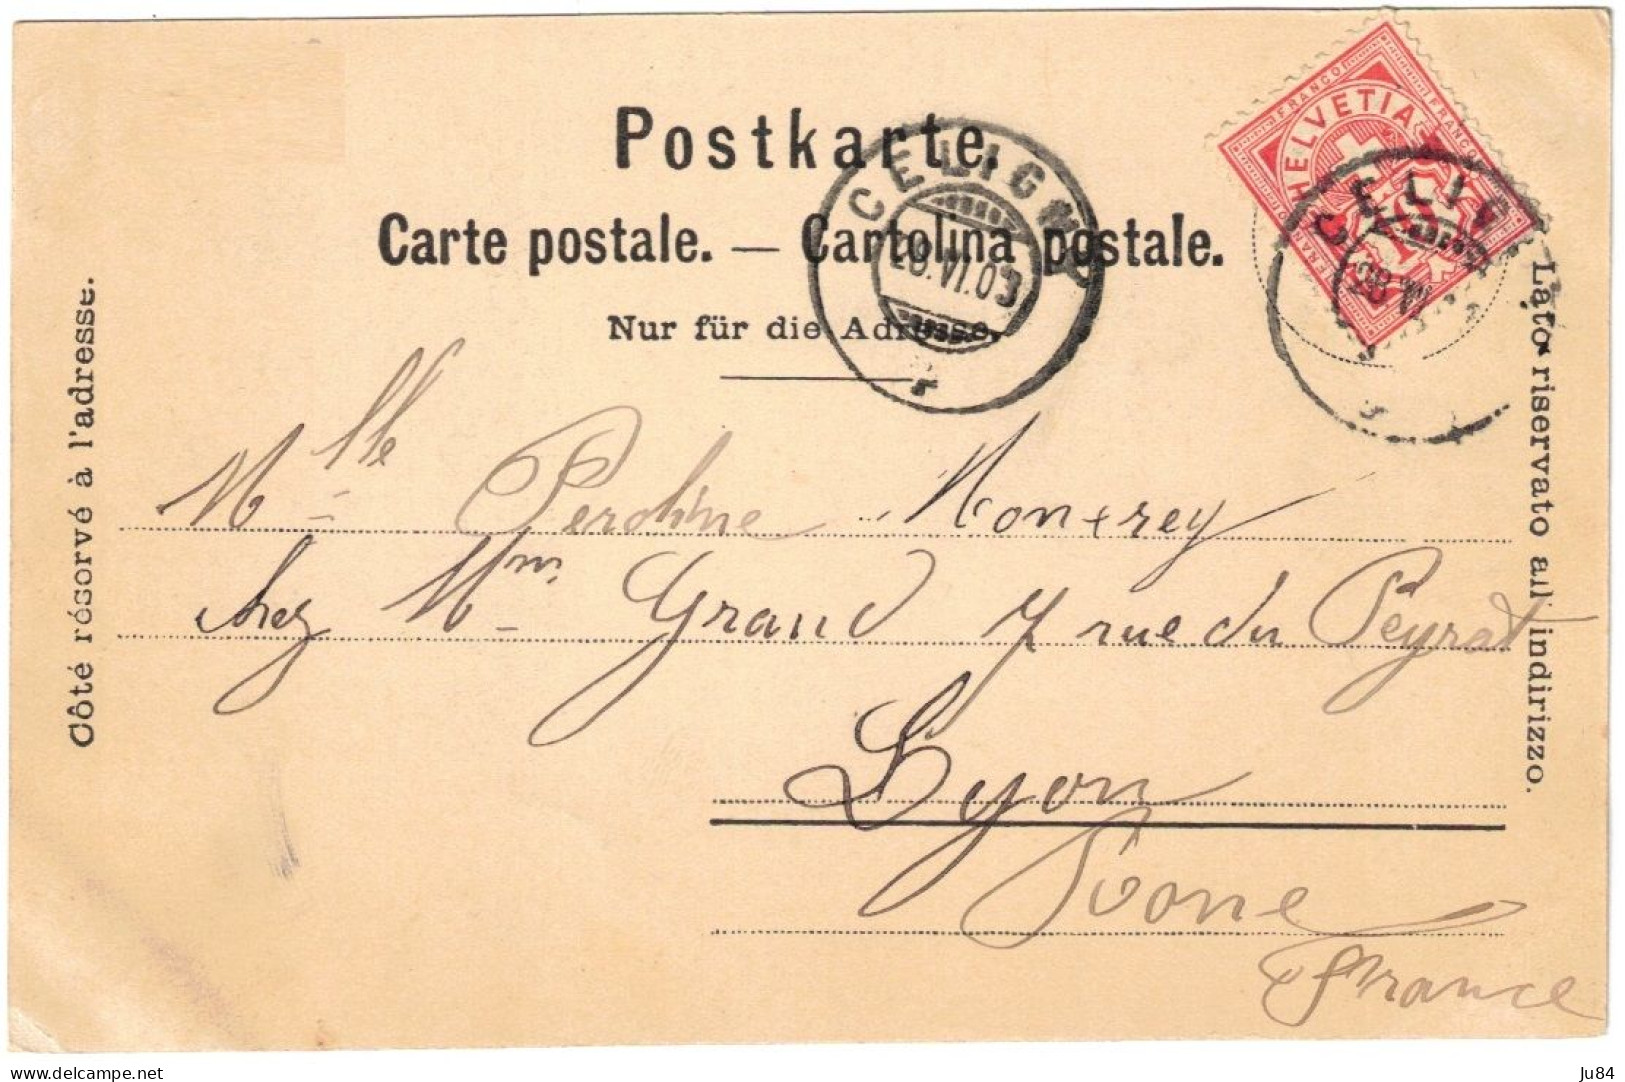 Postkarte.
Carte postale. — Cartolina postale.
Nur für die Adresse.
FRANCO FRANCO
HELVETIA
CELIGNY
28.VI.03
CELIG
28 VI
Côté réservé à l'adresse.
Lato riservato all'indirizzo.
Mlle Monfrey
chez Mme Grand 7 rue du Peyrat
Lyon
France
delcampe.net
Ju84